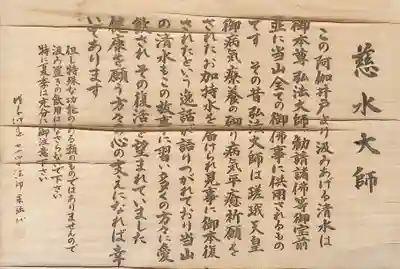 慈水大師
この阿伽井戸より汲みあげる清水は
御本尊弘法大師勧請諸佛等御宝前
並に当山全ての御佛事に供用されるもの
です その昔弘法大師は嵯峨天皇
御病気療養の砌り病気平癒祈願を
されたお加持水を届けられ見事に御本復
されたという逸話が語りつがれており当山
の清水もこの故事に習い多くの方々に愛
飲され その復活を望まれていました
健康を願う方々の心の支えになれば幸
いであります
但し特殊な功能のある類のものではありませんので
汲み置きの飲用はなさらないで下さい
特に夏季は充分に御注意下さい